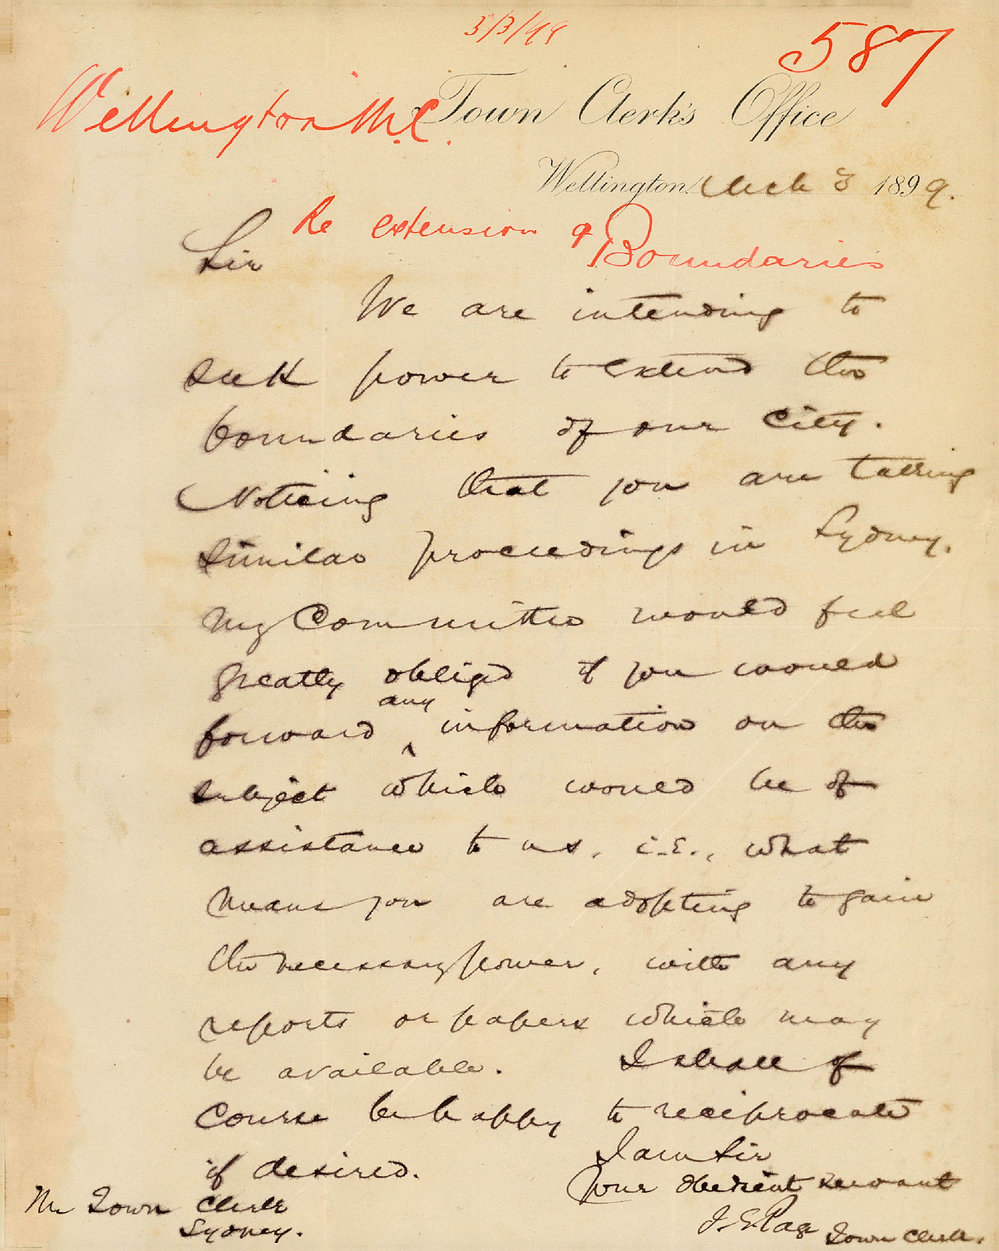 5/3/99
587
Wellington M.C.
Town Clerk's Office
Wellington, Mch 3 1899.
Re extension of Boundaries
Sir
We are intending to
seek power to extend the
boundaries of our City.
Noticing that you are taking
similar proceedings in Sydney,
my Committee would feel
greatly obliged if you would
forward any information on the
subject which would be of
assistance to us, i.e., what
means you are adopting to gain
the necessary power, with any
reports or papers which may
be available. I shall of
course be happy to reciprocate
if desired.
I am Sir
Your obedient servant
J. E. Page Town Clerk.
The Town Clerk
Sydney.